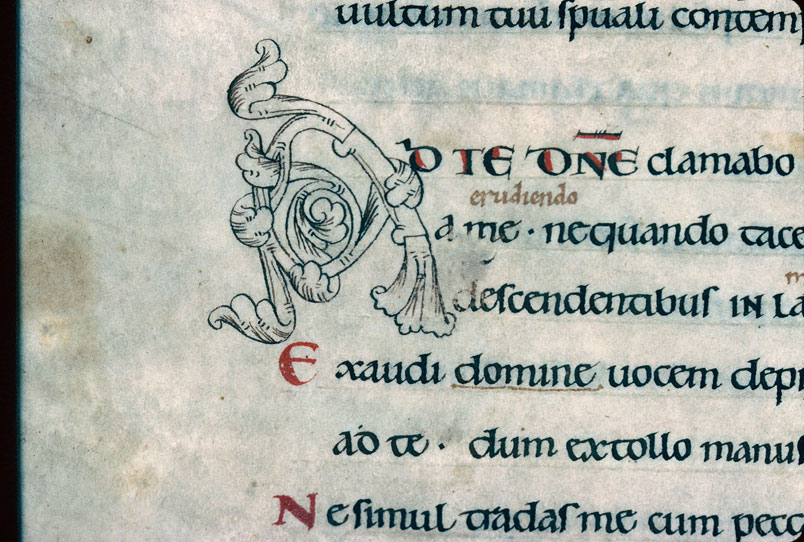 uultum tuu spuali contem
AD TE DNE clamabo
erudiendo
a me · nequando tace
descendentibus IN LA
Exaudi domine uocem depr
ad te · dum extollo manus
Ne simul tradas me cum pecc